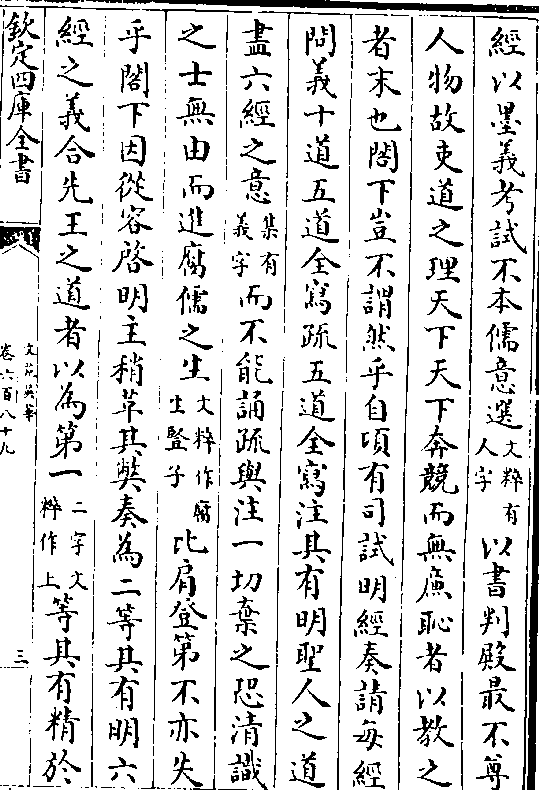 經以墨義考試不本儒意選文粹有人字以書判殿最不尊
人物故吏道之理天下天下奔競而無廉恥者以教之
者末也閤下豈不謂然乎自頃有司試明經奏請每經
問義十道五道全寫疏五道全寫注其有明聖人之道
盡六經之意集有義字而不能誦疏與注一切棄之恐清識
之士無由而進腐儒之生文粹作腐生豎子比肩登第不亦失
乎閤下因從容啓明主稍革其獘奏為二等其有明六
經之義合先王之道者以為第一二字文粹作上等其有精於
欽定四庫全書
文苑英華
卷六百八十九
三